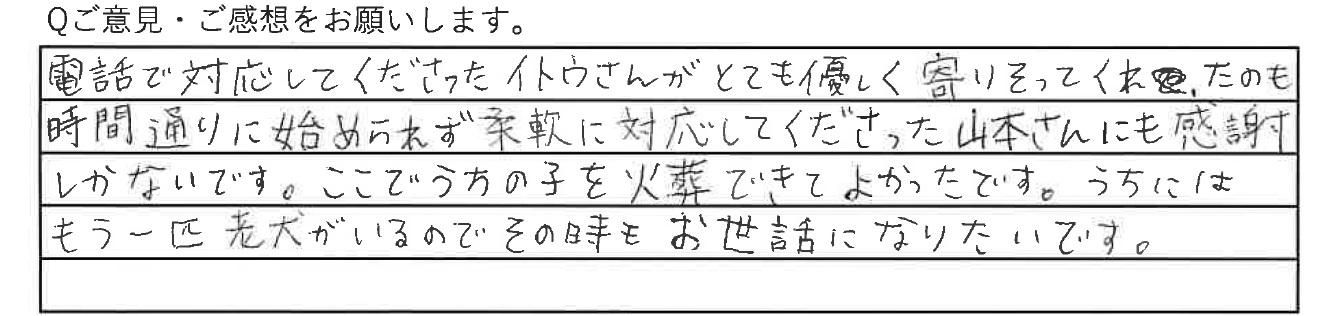 Qご意見・ご感想をお願いします。
電話で対応してくださったイトウさんがとても優しく寄りそってくれ、たのも
時間通りに始められず柔軟に対応してくださった山本さんにも感謝
しかないです。ここでうちの子を火葬できてよかったです。うちには
もう一匹老犬がいるのでその時もお世話になりたいです。